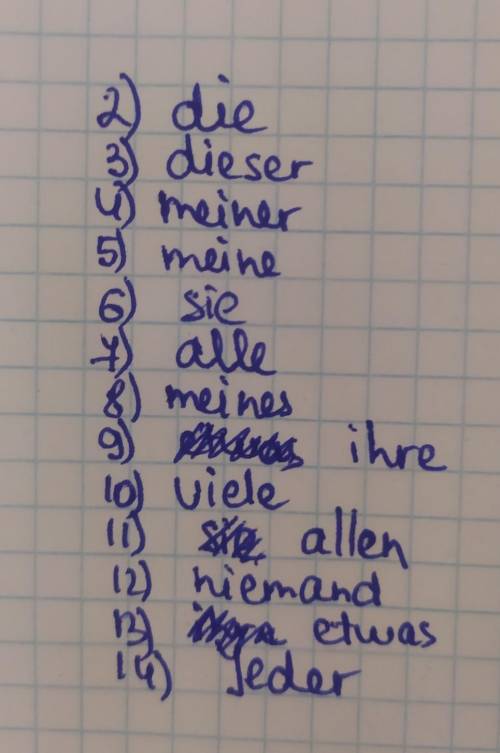 2) die
3) dieser
4) meiner
5) meine
6) sie
7) alle
8) meines
9) ihre
10) viele
11) allen
12) niemand
13) etwas
14) Jeder